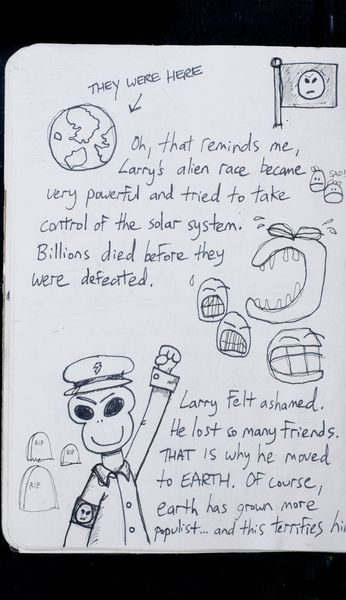 THEY WERE HERE
Oh, that reminds me,
Larry's alien race became
very powerful and tried to take
control of the solar system.
Billions died before they
were defeated.
SAD!
Larry felt ashamed.
He lost so many friends.
THAT IS why he moved
to EARTH. Of course,
earth has grown more
populist... and this terrifies him
RIP
RIP
RIP